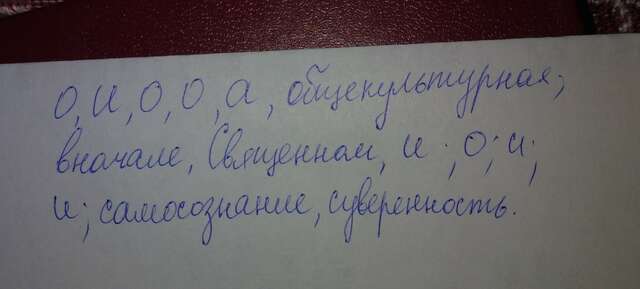 О, И, О, О, а, общекультурная;
вначале, Священном, и ; О; и;
и; самосознание, суверенность.